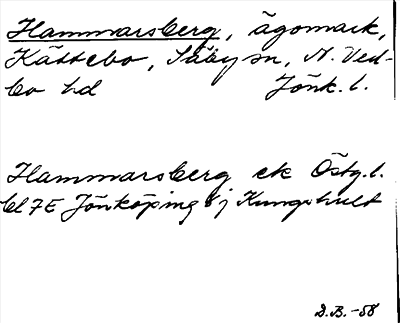 Hammarsberg, ägomark,
Kättebo, Säby sn, N. Ved-
bo hd Jönk. l.
Hammarsberg ek Östg. l.
bl 7E Jönköping sj Kungshult
D.B. -58